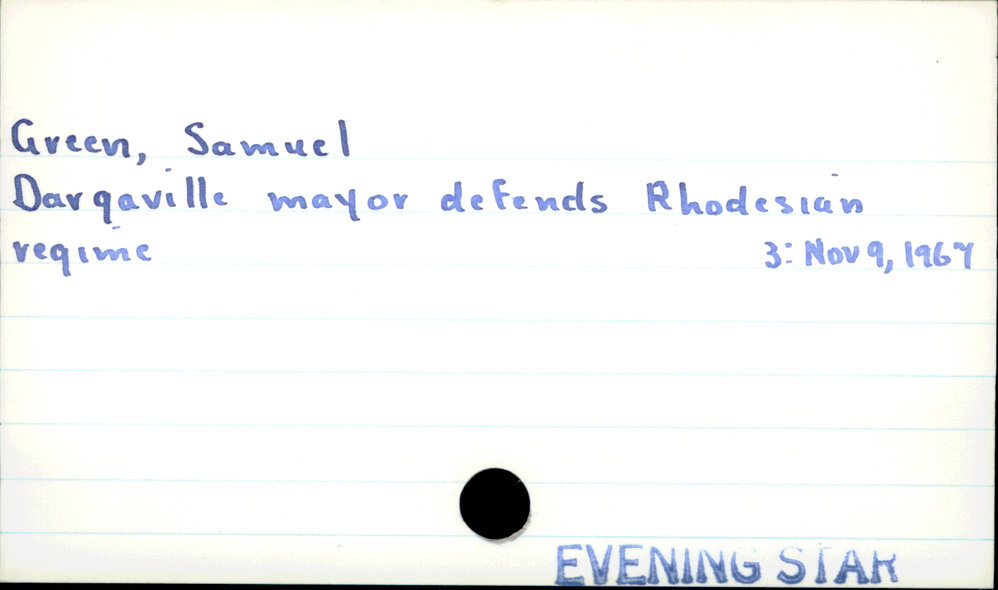 Green, Samuel
Dargaville mayor defends Rhodesian
regime 3: Nov 9, 1967
EVENING STAR